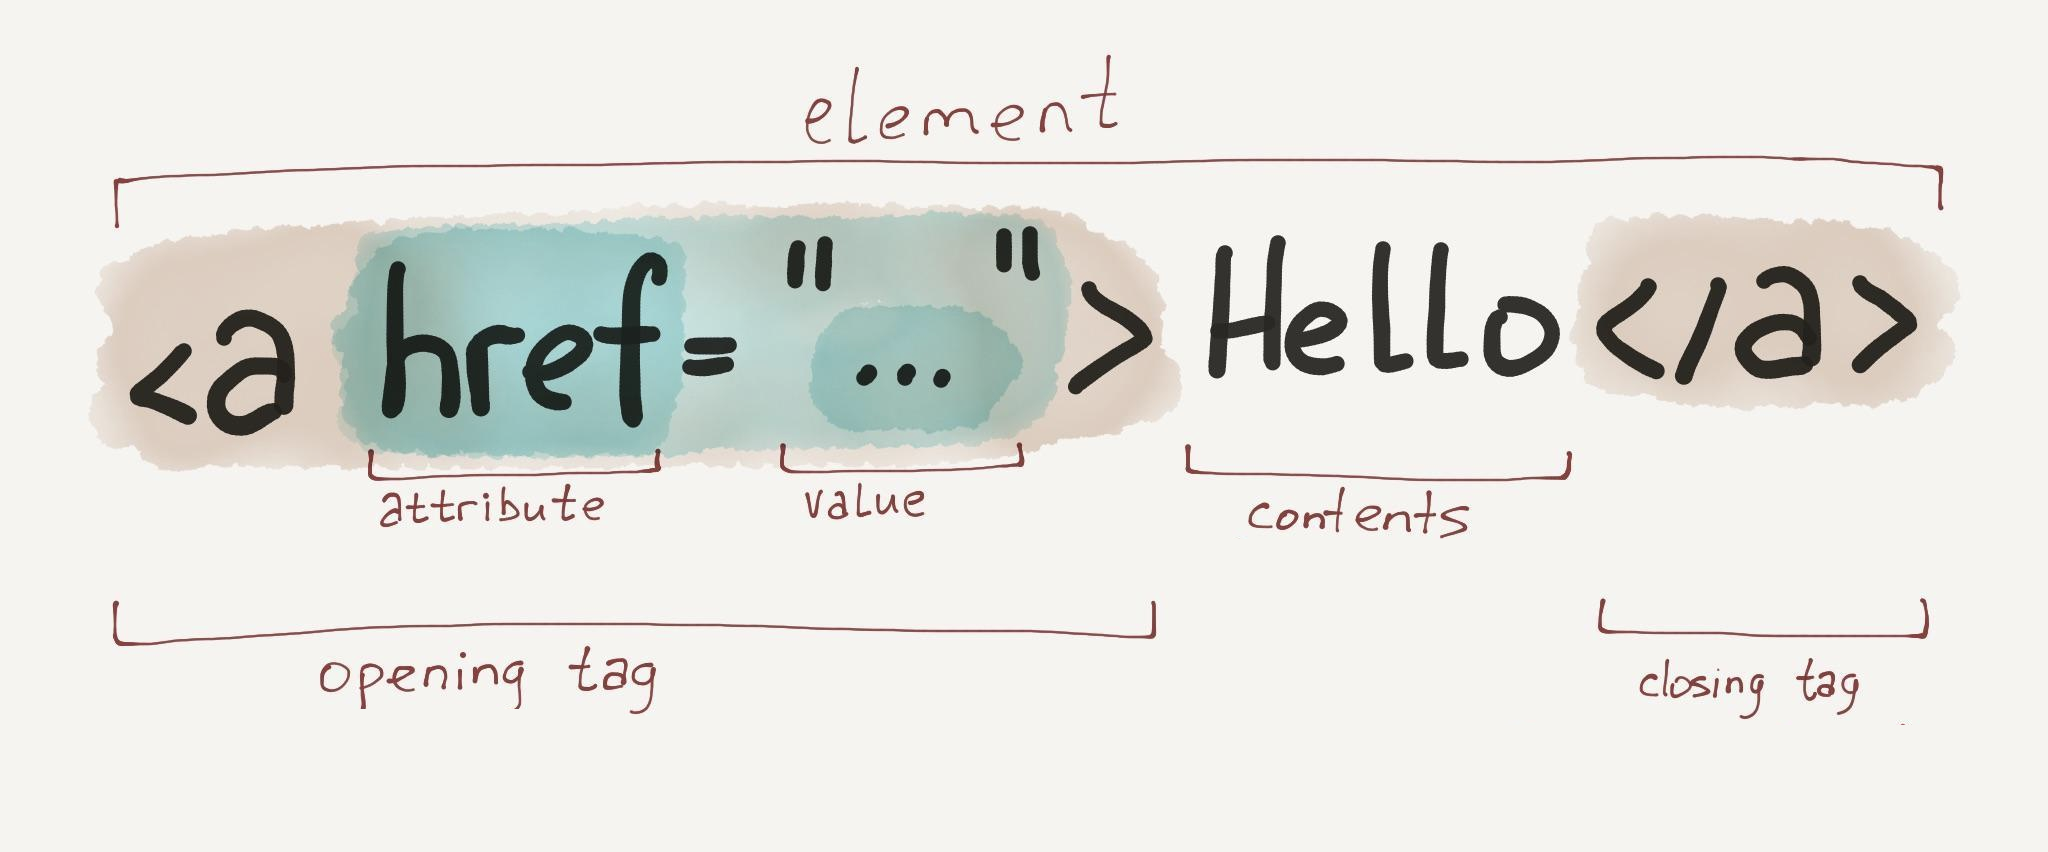 element
<a href="...">Hello</a>
attribute value contents
opening tag closing tag